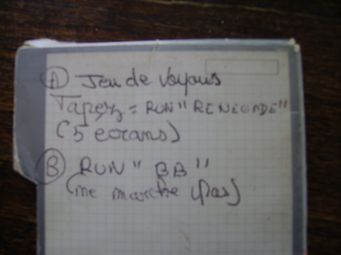 A Jeu de Voyous
Tapez = RUN" RENEGADE"
(5 ecrans)
B RUN " BB "
(ne marche pas)